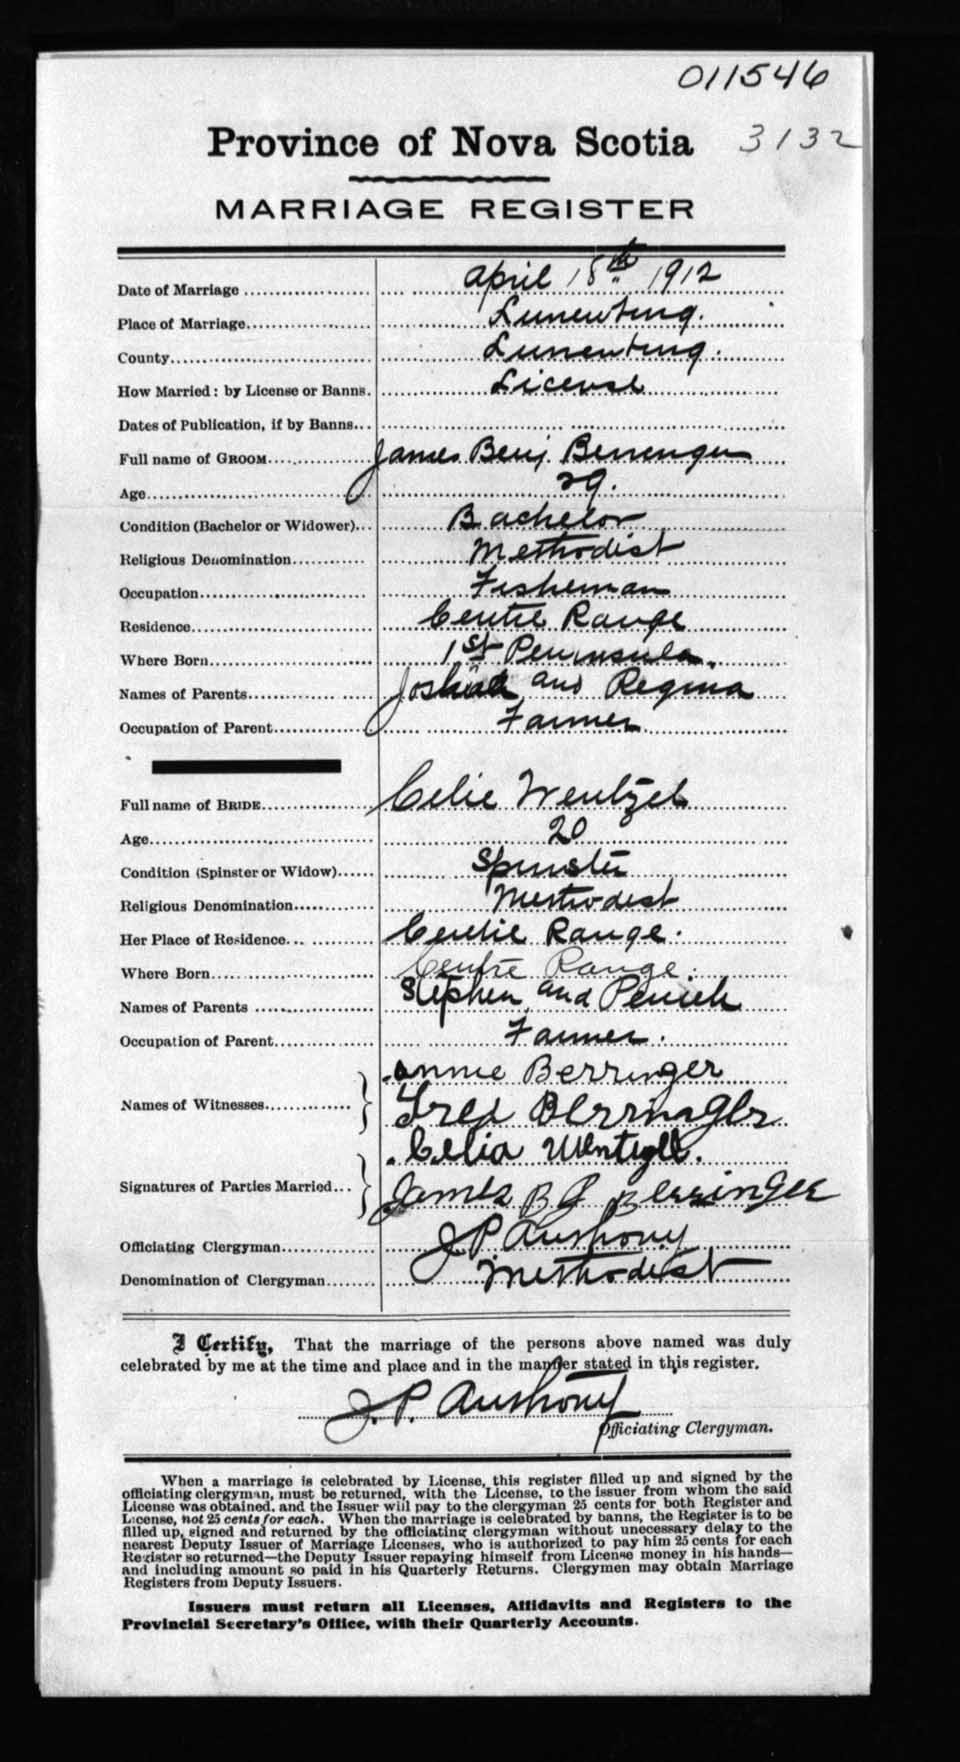 011546
Province of Nova Scotia 3132
MARRIAGE REGISTER
Date of Marriage April 18th 1912
Place of Marriage Lunenburg.
County Lunenburg.
How Married: by License or Banns. License
Dates of Publication, if by Banns
Full name of GROOM James Benj Berrenger
Age 29.
Condition (Bachelor or Widower) Bachelor
Religious Denomination Methodist
Occupation Fisherman
Residence Centre Range
Where Born 1st Peninsula.
Names of Parents Joshua and Regina
Occupation of Parent Farmer
Full name of BRIDE Celie Wentzel
Age 20
Condition (Spinster or Widow) Spinster
Religious Denomination Methodist
Her Place of Residence Centre Range.
Where Born Centre Range.
Names of Parents Stephen and
Occupation of Parent Farmer.
Annie Berringer
Names of Witnesses Fred Berringer
Celia Wentzell.
Signatures of Parties Married James B Berringer
Officiating Clergyman J P Anthony
Denomination of Clergyman Methodist
I Certify, That the marriage of the persons above named was duly
celebrated by me at the time and place and in the manner stated in this register.
J. P. Anthony
Officiating Clergyman.
When a marriage is celebrated by License, this register filled up and signed by the
officiating clergyman, must be returned, with the License, to the issuer from whom the said
License was obtained, and the Issuer will pay to the clergyman 25 cents for both Register and
License, not 25 cents for each. When the marriage is celebrated by banns, the Register is to be
filled up, signed and returned by the officiating clergyman without unnecessary delay to the
nearest Deputy Issuer of Marriage Licenses, who is authorized to pay him 25 cents for each
Register so returned—the Deputy Issuer repaying himself from License money in his hands—
and including amount so paid in his Quarterly Returns. Clergymen may obtain Marriage
Registers from Deputy Issuers.
Issuers must return all Licenses, Affidavits and Registers to the
Provincial Secretary's Office, with their Quarterly Accounts.